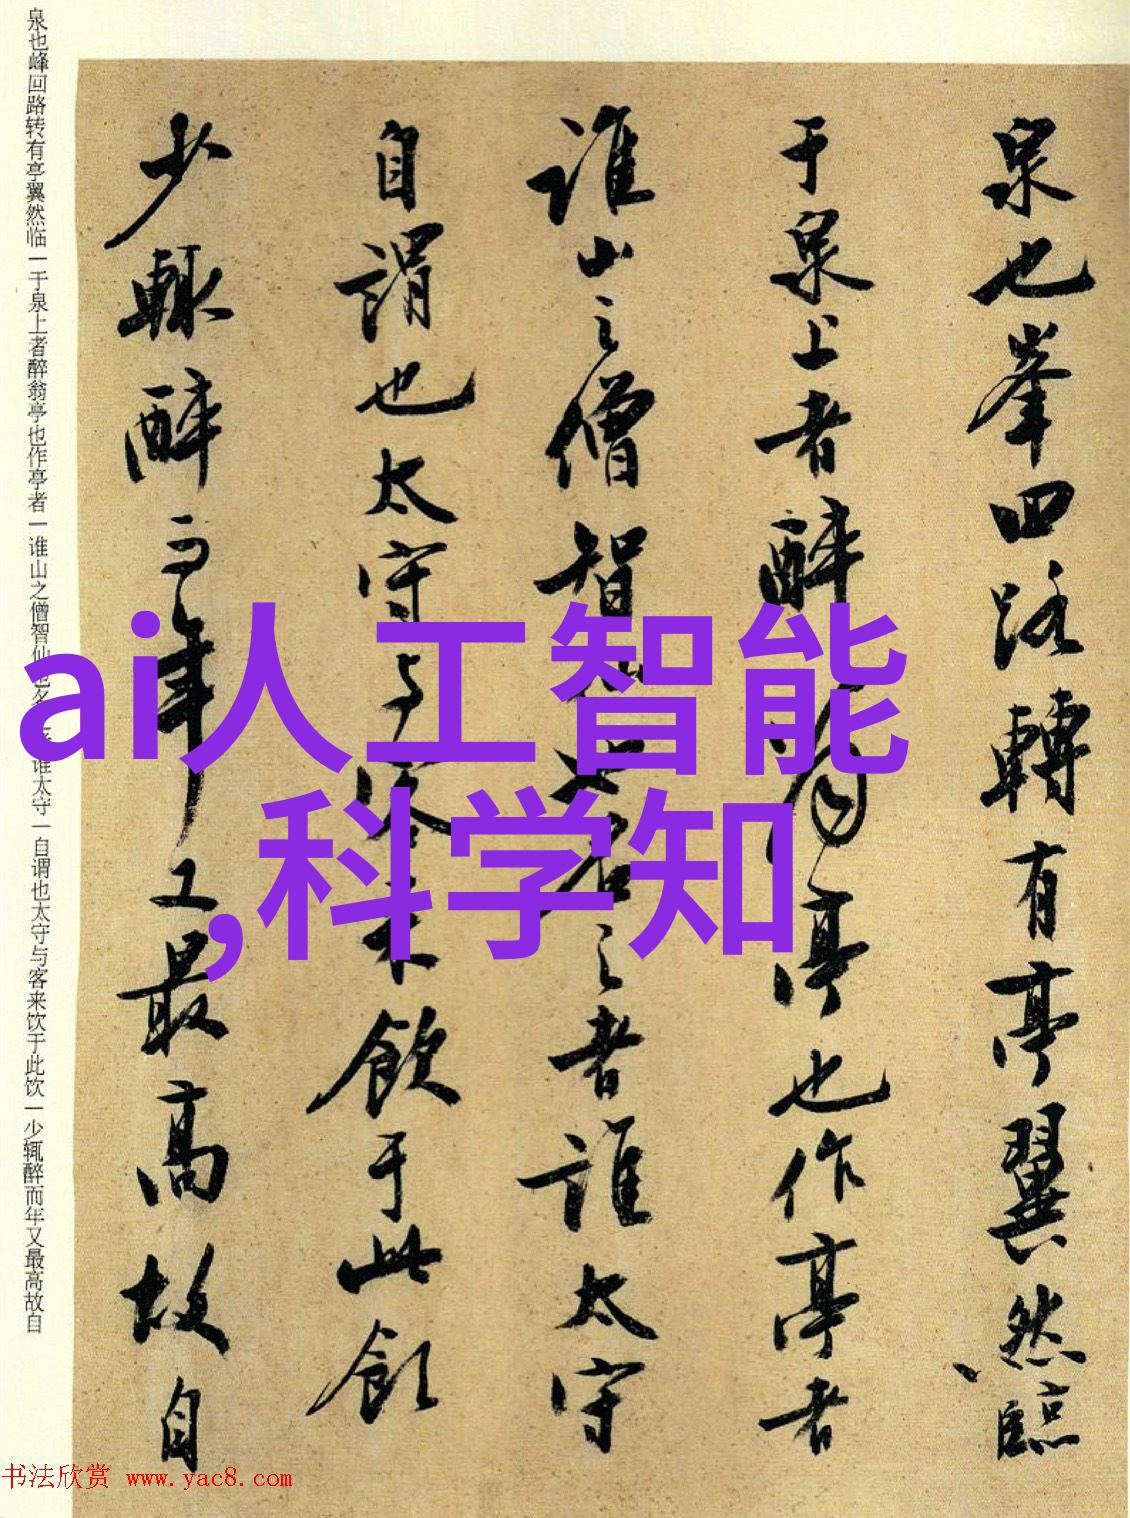 泉也峯回路轉有亭翼然臨
于泉上者醉翁亭也作亭者
誰山之僧智仙也名之者誰太守
自謂也太守与客来飲于此飲
少輒醉而年又最高故自
泉也峰回路转有亭翼然临一于泉上者醉翁亭也作亭者一谁山之僧智仙也名者谁太守一自谓也太守与客来饮于此饮一少辄醉而年又最高故自
ai人工智能
,科学知
书法欣赏 www.yac8.com